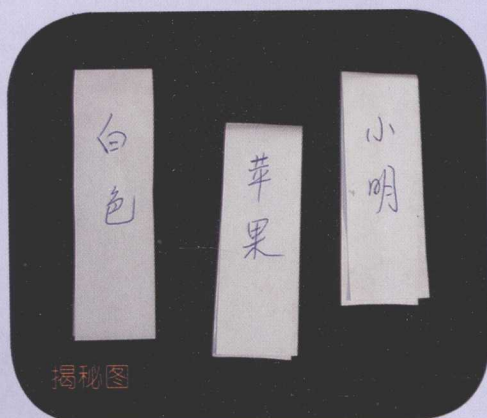 白色
苹果
小明
揭秘图